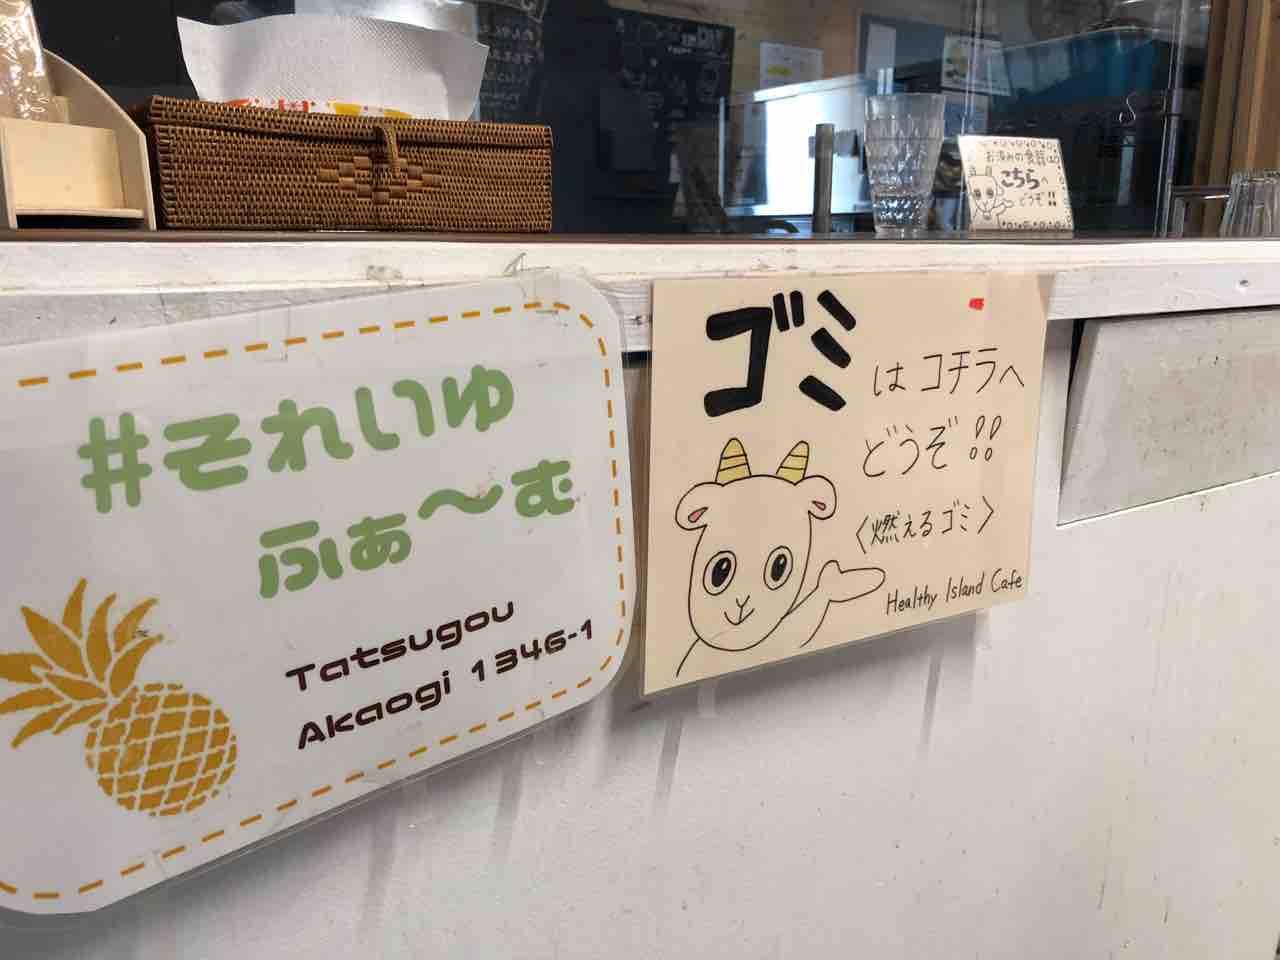 #それいゆ
ふぁ〜む
Tatsugou
Akaogi 1346-1
ゴミはコチラへ
どうぞ!!
〈燃えるゴミ〉
Healthy Island Cafe
お済みの食器は
こちらへ
どうぞ!!